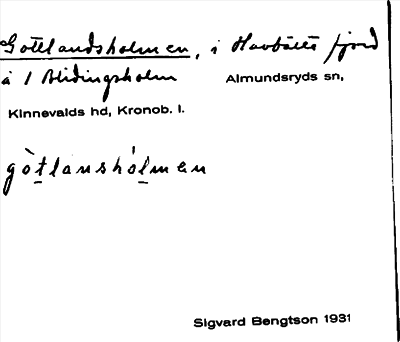 Gottlandsholmen, i Havbältefjord
å 1 Blidingsholm Almundsryds sn,
Kinnevalds hd, Kronob. l.
gòtlànshólmen
Sigvard Bengtson 1931